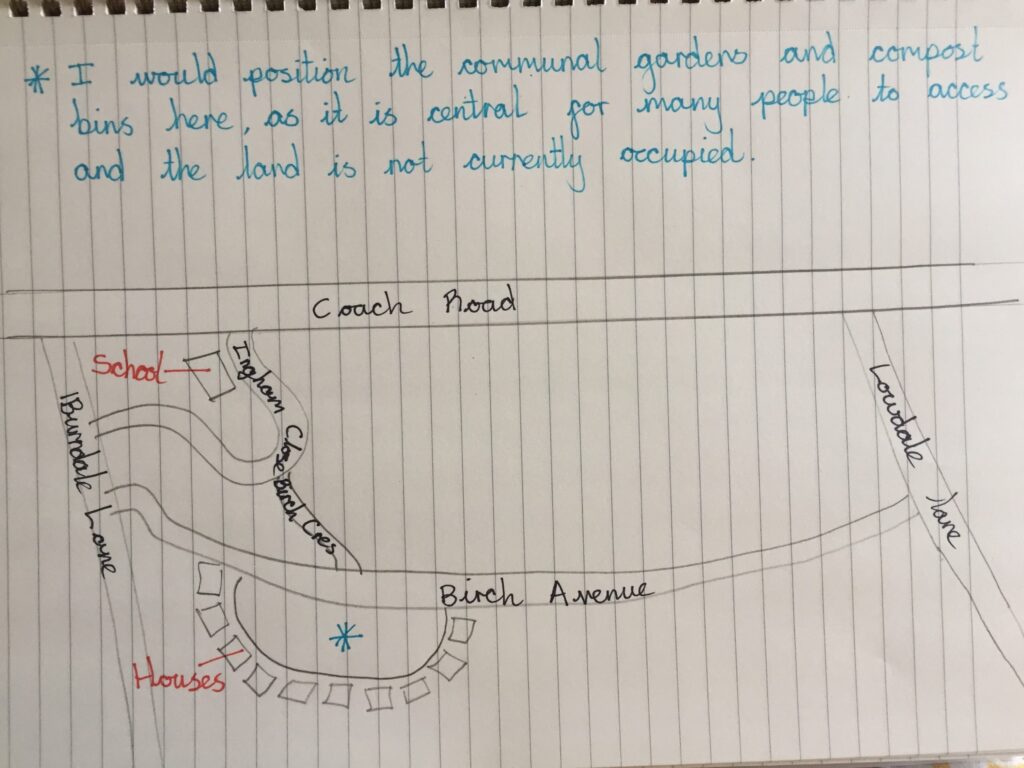 * I would position the communal gardens and compost
bins here, as it is central for many people to access
and the land is not currently occupied.
Coach Road
School
Ingham Close
Burndale Lane
Birch Cres
Lowdale lane
Birch Avenue
*
Houses